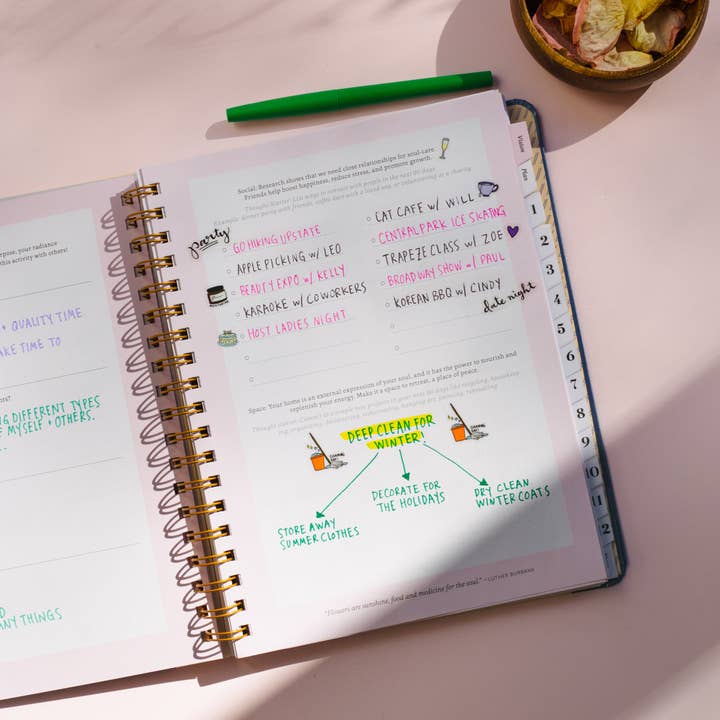 rpose, your radiance
this activity with others!
+ QUALITY TIME
AKE TIME TO
ors!
NG DIFFERENT TYPES
F MYSELF + OTHERS.
D
ANY THINGS
Social: Research shows that we need close relationships for soul-care.
Friends help boost happiness, reduce stress, and promote growth.
Thought Starter: List ways to connect with people in the next 90 days.
Example: dinner party with friends, coffee date with a loved one, or volunteering at a charity
party
GO HIKING UPSTATE
APPLE PICKING W/ LEO
BEAUTY EXPO W/ KELLY
KARAOKE W/ COWORKERS
HOST LADIES NIGHT
CAT CAFE W/ WILL
CENTRAL PARK ICE SKATING
TRAPEZE CLASS W/ ZOE
BROADWAY SHOW W/ PAUL
KOREAN BBQ W/ CINDY
date night
Space: Your home is an external expression of your soul, and it has the power to nourish and
replenish your energy. Make it a space to retreat, a place of peace.
DEEP CLEAN FOR
WINTER!
STORE AWAY
SUMMER CLOTHES
DECORATE FOR
THE HOLIDAYS
DRY CLEAN
WINTER COATS
"Flowers are sunshine, food and medicine for the soul." – LUTHER BURBANK
Vision
Plan
1
2
3
4
5
6
7
8
9
10
11